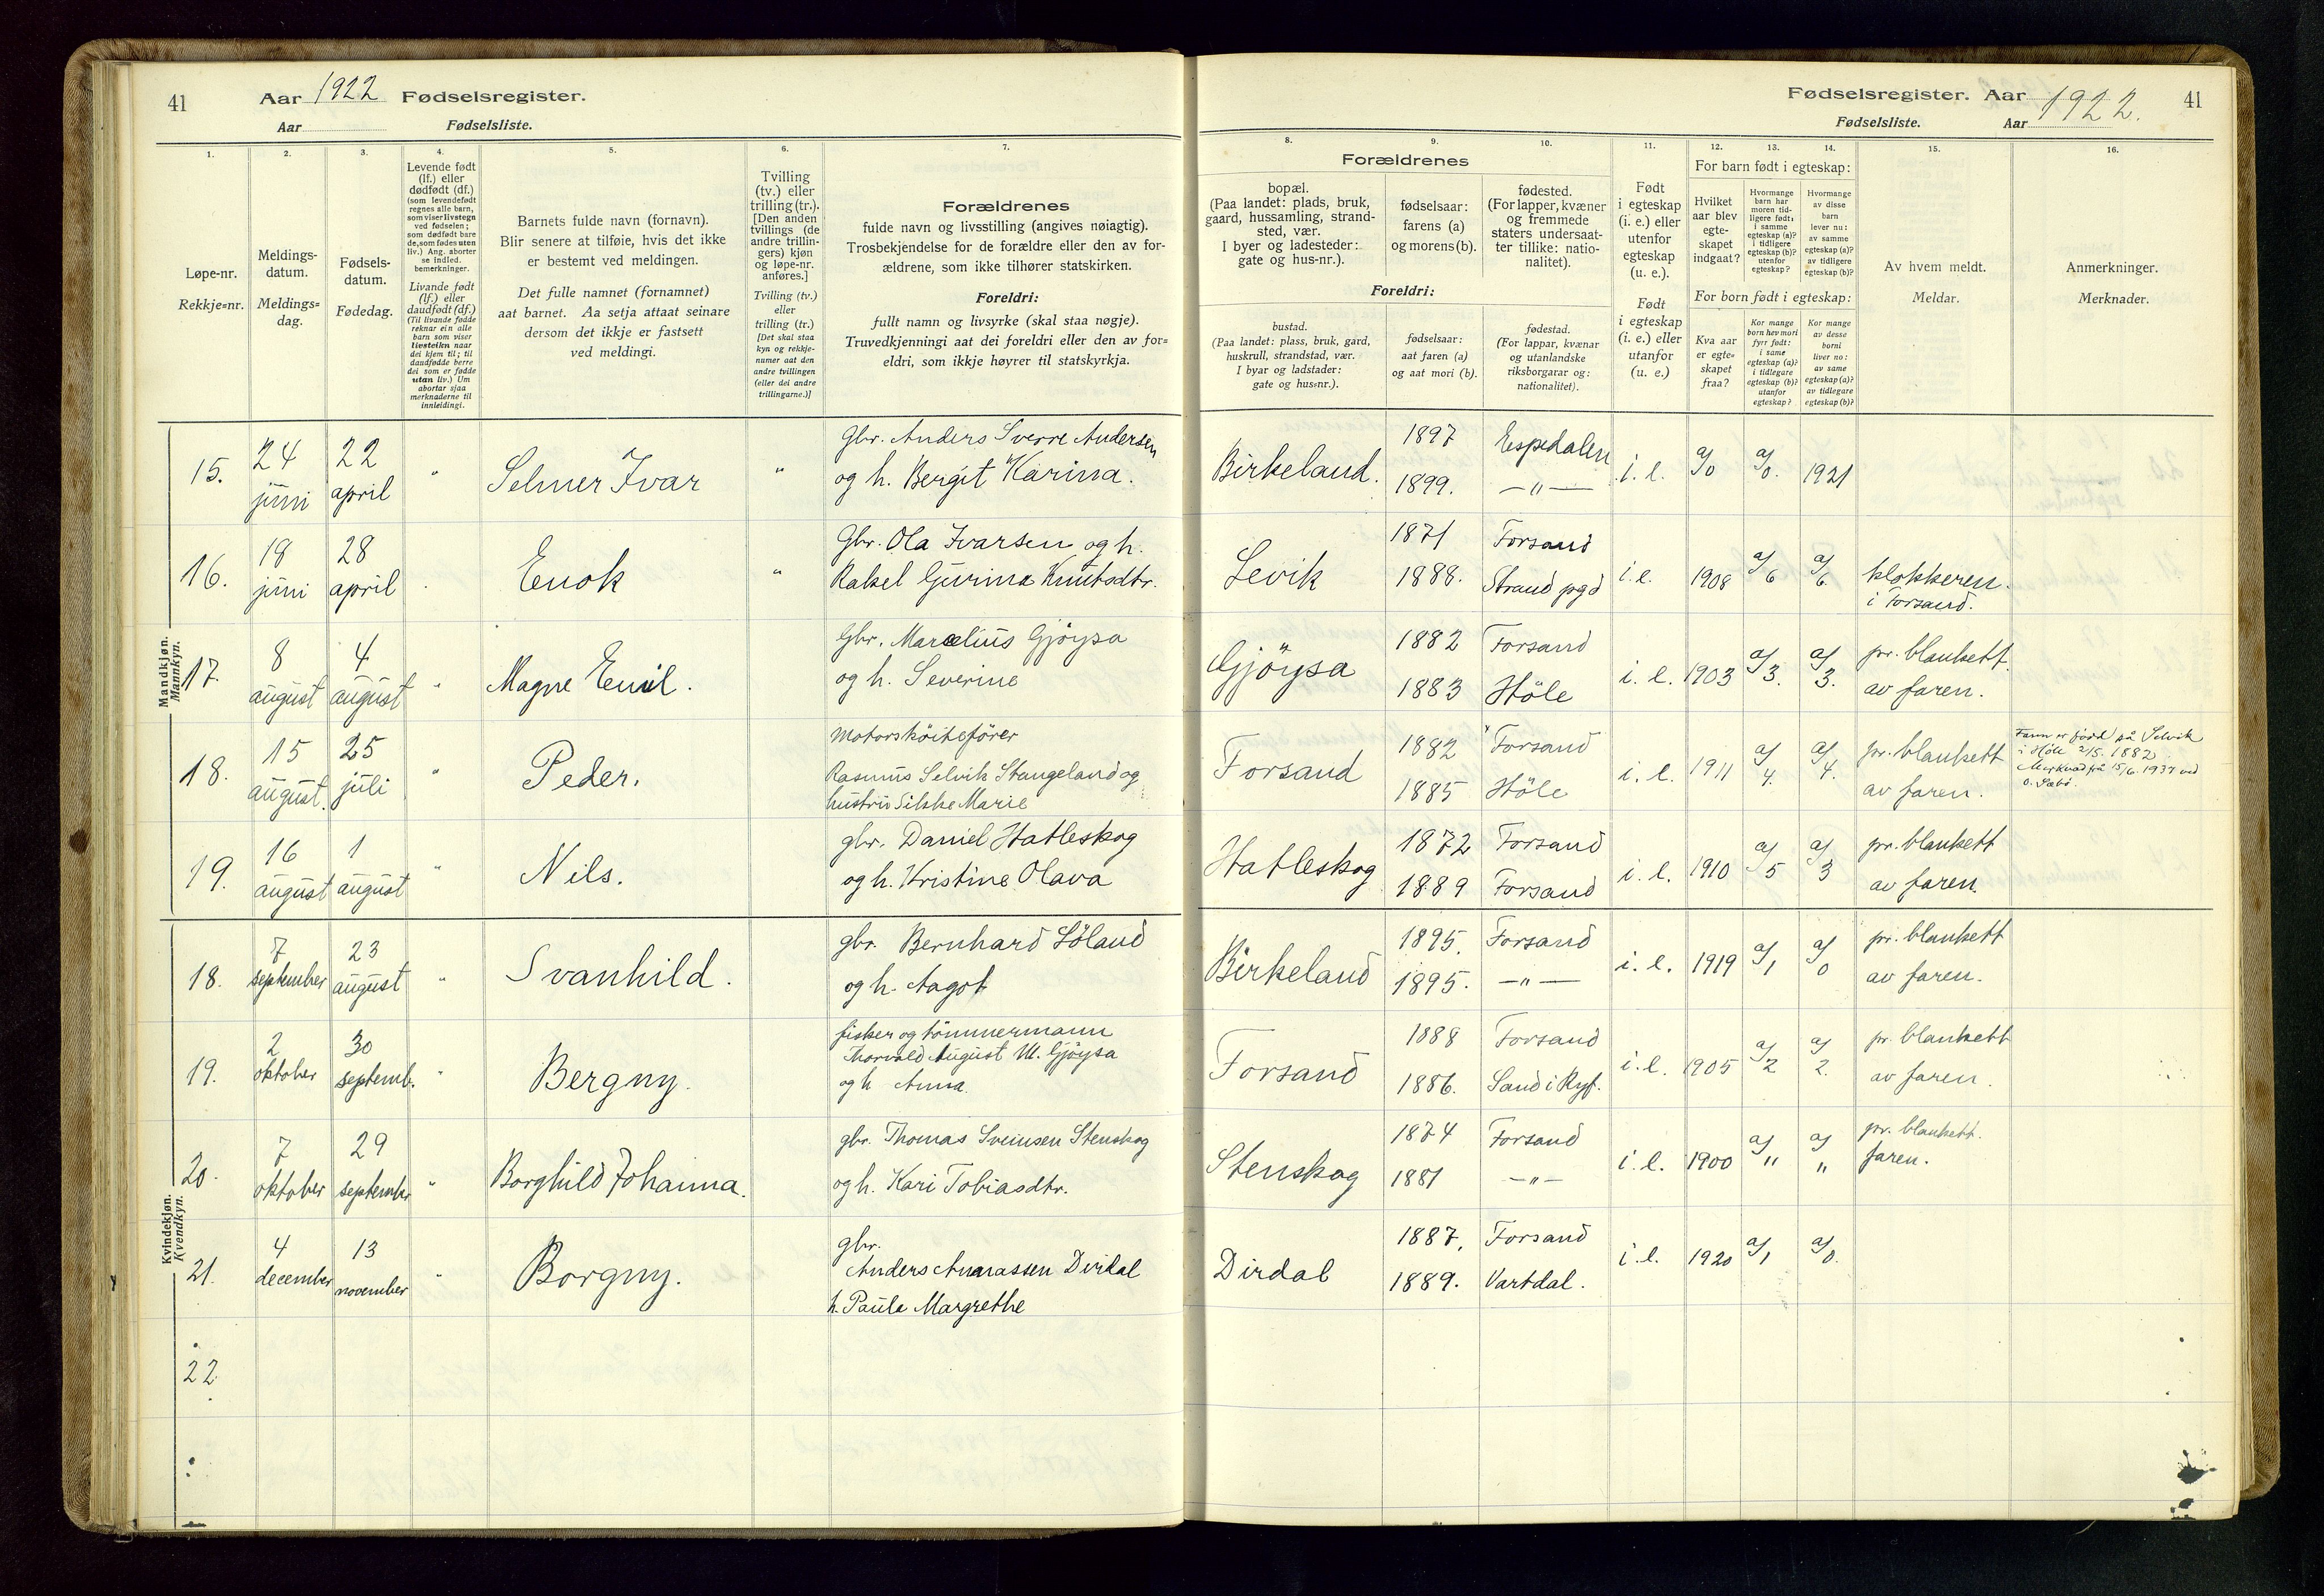 41 Aar 1922 Fødselsregister.
Aar Fødselsliste.
1. 2. 3. 4. 5. 6. 7.
Løpe-nr.
Rekkje=nr.
Meldings-
datum.
Meldings=
dag.
Fødsels-
datum.
Fødedag.
Levende født
(lf.) eller
dødfødt (df.)
(som levendefødt
regnes alle barn,
som viser livstegn
ved fødselen;
som dødfødt bare
de, som fødes uten
liv.) Ang. aborter
se indled.
bemerkninger.
Livande født
(lf.) eller
daudfødt (df.)
(Til livande fødde
reknar ein alle
barn som viser
livsteikn naar
dei kjem til; til
daudfødde berre
dei som er fødde
utan liv.) Um
abortar sjaa
merknaderne til
innleidingi.
Barnets fulde navn (fornavn).
Blir senere at tilføie, hvis det ikke
er bestemt ved meldingen.
Det fulle namnet (fornamnet)
aat barnet. Aa setja attaat seinare
dersom det ikkje er fastsett
ved meldingi.
Tvilling
(tv.) eller
trilling (tr.).
[Den anden
tvillings (de
andre trillin-
gers) kjøn
og løpe-nr.
anføres.]
Tvilling (tv.)
eller
trilling (tr.)
[Det skal staa
kyn og rekkje-
numer aat den
andre tvillingen
(eller dei andre
trillingarne.)]
Forældrenes
fulde navn og livsstilling (angives nøiagtig).
Trosbekjendelse for de forældre eller den av for-
ældrene, som ikke tilhører statskirken.
Foreldri:
fullt namn og livsyrke (skal staa nøgje).
Truvedkjenningi aat dei foreldri eller den av for=
eldri, som ikkje høyrer til statskyrkja.
Mandkjøn.
Mannkyn.
15. 24 juni 22 april " Selmer Ivar "
Gbr. Anders Sverre Andersen
og h. Bergit Karina.
16. 18 juni 28 april Enok "
Gbr. Ola Ivarsen og h.
Rakel Gurina Knutsdtr.
17. 8 august 4 august " Magne Emil.
Gbr. Marselius Gjöysa
og h. Severine
18. 15 august. 25 juli " Peder.
Motorsköiteförer
Rasmus Selvik Stangeland og
hustru Silkke Marie
19. 16 august 1 august " Nils.
gbr. Daniel Hatleskog
og h. Kristine Olava
Kvindekjøn.
Kvendkyn.
18. 7 september 23 august " Svanhild.
gbr. Bernhard Löland
og h. Aagot
19. 2 oktober 30 septemb. " Bergny.
fisker og tömmermann
Thorvald August M. Gjöysa
og h Anna.
20. 7 oktober 29 september " Borghild Johanna.
gbr. Thomas Sveinsen Stenskog
og h. Kari Tobiasdtr.
21. 4 december 13 november " Borgny.
gbr.
Anders Aanassen Dirdal
h. Paula Margrethe
22.
Fødselsregister. Aar 1922. 41
Fødselsliste. Aar
8. 9. 10. 11. 12. 13. 14. 15. 16.
Forældrenes
bopæl.
(Paa landet: plads, bruk,
gaard, hussamling, strand-
sted, vær.
I byer og ladesteder:
gate og hus-nr.).
fødselsaar:
farens (a)
og morens (b).
fødested.
(For lapper, kvæner
og fremmede
staters undersaat-
ter tillike: natio-
nalitet).
Foreldri:
bustad.
(Paa landet: plass, bruk, gard,
huskrull, strandstad, vær.
I byar og ladstader:
gate og hus=nr.).
fødselsaar:
aat faren (a)
og aat mori (b).
fødestad.
(For lappar, kvænar
og utanlandske
riksborgarar og:
nationalitet).
Født
i egteskap
(i. e.) eller
utenfor
egteskap
(u. e.).
Født
i egteskap
(i. e.) eller
utanfor
(u. e.)
For barn født i egteskap:
Hvilket
aar blev
egte-
skapet
indgaat?
Hvormange
barn har
moren tid-
ligere født:
i samme
egteskap (a)?
i tidligere
egteskap (b)?
utenfor
egteskap?
Hvormange
av disse
barn
lever nu:
av samme
egteskap (a)?
av tidligere
egteskap (b)?
For born født i egteskap:
Kva aar
er egte-
skapet
fraa?
Kor mange
born hev mori
fyrr født:
i same
egteskap (a)?
i tidlegare
egteskap (b)?
utanfor
egteskap?
Kor mange
av desse
borni
liver no:
av same
egteskap (a)?
av tidlegare
egteskap (b)?
Av hvem meldt.
Meldar.
Anmerkninger.
Merknader.
Birkeland. 1897 Espedalen i. e. a/0 a/0. 1921
1899. —"—
Levik 1871 Forsand i. e. 1908 a/6 a/6. klokkeren.
1888. Strand pgd i Forsand.
Gjöysa 1882 Forsand i. e. 1903 a/3. a/3. pr. blankett.
1883 Höle av faren.
Forsand 1882 Forsand i. e. 1911 a/4. a/4. pr. blankett
1885 Höle av faren.
Faren er född på Selvik
i Höle 2/5. 1882
Hatleskog 1872 Forsand i. e. 1910 a/5 a/3 pr. blankett
1889 Forsand av faren.
Birkeland 1895. Forsand i. e. 1919 a/1 a/0 pr. blankett
1895. —"— av faren.
Forsand 1888 Forsand i. e. 1905 a/2 a/2. pr. blankett
1886. Sand i Ryf. av faren.
Stenskog 1874 Forsand i. e. 1900 a/" a/" pr. blankett.
1881 —"— faren.
Dirdal 1887. Forsand i. e. 1920 a/1 a/0.
1889. Vartdal.